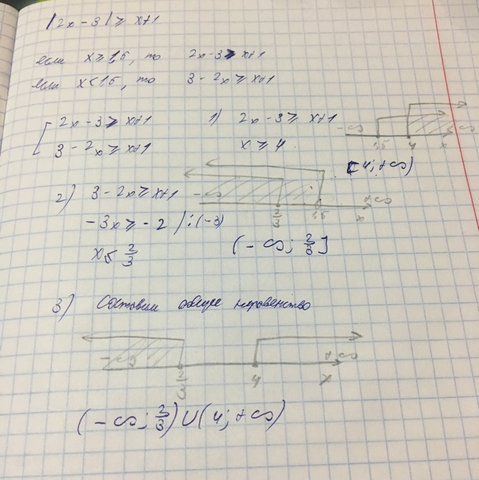 |2x-3|≥x+1
если x≥1,5, то 2x-3≥x+1
если x<1,5, то 3-2x≥x+1
[ 2x-3≥x+1
3-2x≥x+1
1) 2x-3≥x+1
x≥4
-∞ 1,5 4 +∞
x
[4;+∞)
2) 3-2x≥x+1
-3x≥-2 /:(-3)
x≤2/3
-∞ 2/3 1,5 +∞
x
(-∞; 2/3]
3) Составим общее неравенство
-∞ 2/3 4 +∞
x
(-∞; 2/3)∪(4;+∞)